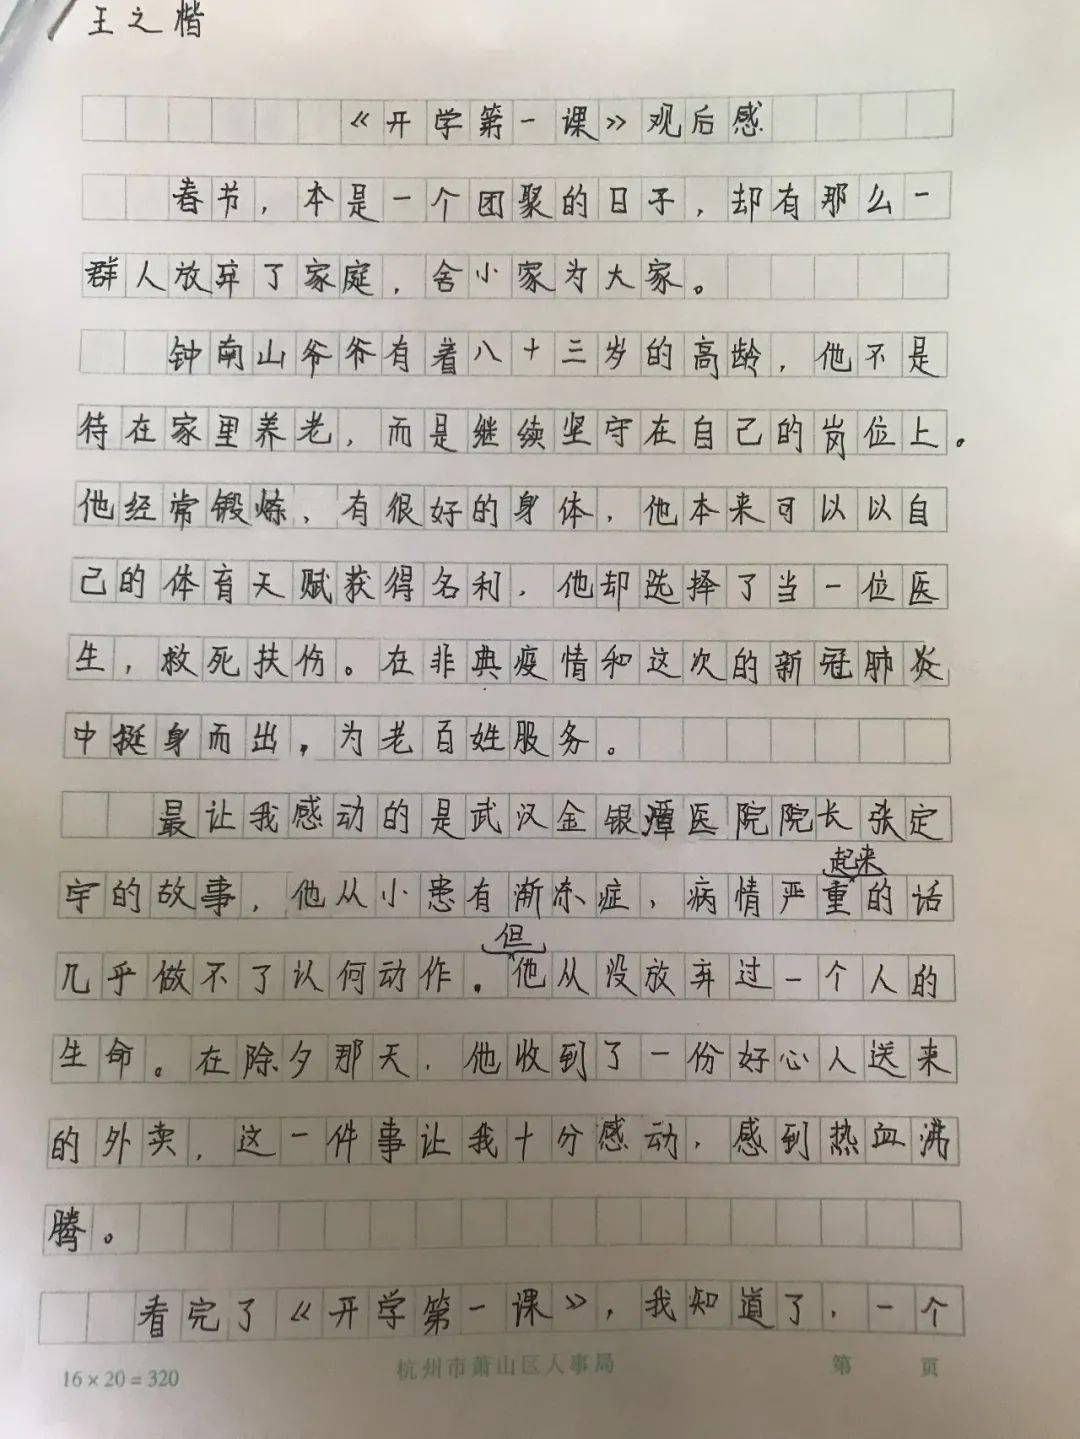 王之楷
《开学第一课》观后感
春节，本是一个团聚的日子，却有那么一
群人放弃了家庭，舍小家为大家。
钟南山爷爷有着八十三岁的高龄，他不是
待在家里养老，而是继续坚守在自己的岗位上。
他经常锻炼，有很好的身体，他本来可以以自
己的体育天赋获得名利，他却选择了当一位医
生，救死扶伤。在非典疫情和这次的新冠肺炎
中挺身而出，为老百姓服务。
最让我感动的是武汉金银潭医院院长张定
起来
宇的故事，他从小患有渐冻症，病情严重的话
但
几乎做不了认何动作。他从没放弃过一个人的
生命。在除夕那天，他收到了一份好心人送来
的外卖，这一件事让我十分感动，感到热血沸
腾。
看完了《开学第一课》，我知道了，一个
16×20=320 杭州市萧山区人事局 第 页